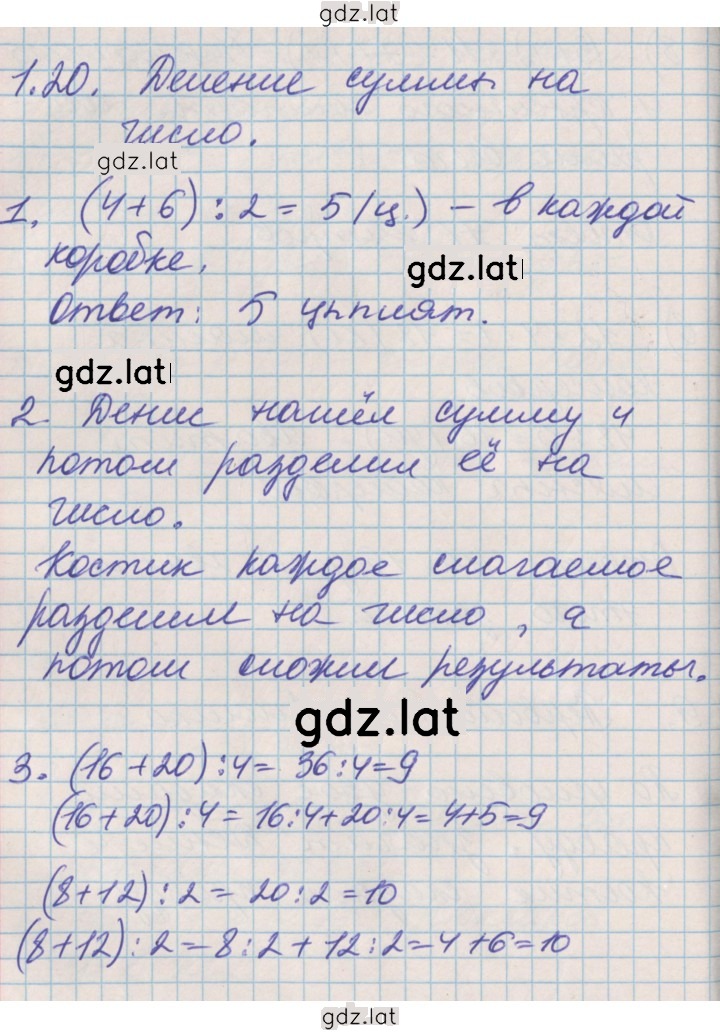 gdz.lat
1.20. Деление суммы на
число.
gdz.lat
1. (4+6) : 2 = 5 (ц.) – в каждой
коробке.
gdz.lat
Ответ: 5 цыплят.
gdz.lat
2. Денис нашёл сумму и
потом разделил её на
число.
Костик каждое слагаемое
разделил на число, а
потом сложил результаты.
gdz.lat
3. (16+20) : 4 = 36 : 4 = 9
(16+20) : 4 = 16 : 4 + 20 : 4 = 4+5 = 9
(8+12) : 2 = 20 : 2 = 10
(8+12) : 2 = 8 : 2 + 12 : 2 = 4+6 = 10
gdz.lat